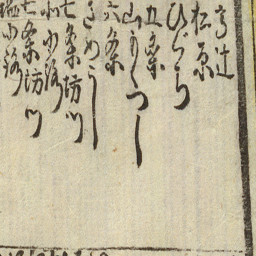 高辻
松原
ひぐち
五条
六条
さめうし
七条坊門
北小路
条坊門
塩小路